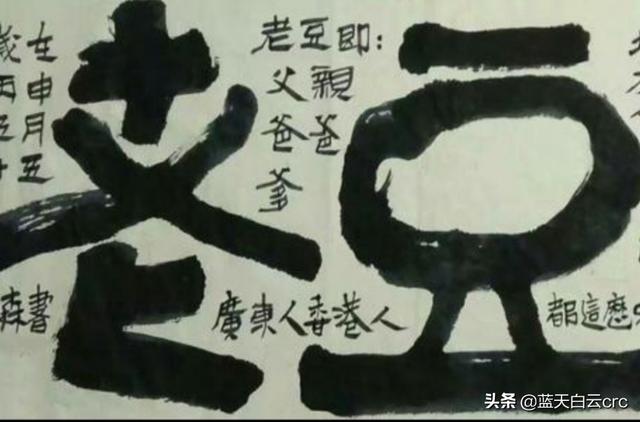 老豆
老豆即：
父親
爸爸
爹
廣東人香港人
都這
在申月五
歲
五
森書
头条 @蓝天白云crc